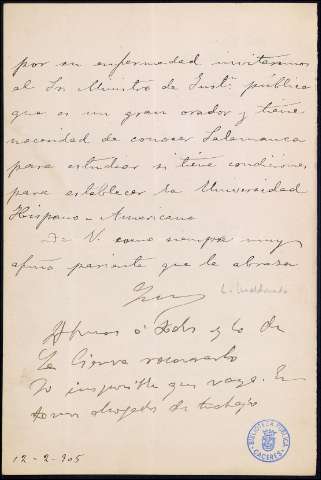 por su enfermedad invitaremos
al Sr Ministro de Instn. pública
que es un gran orador y tiene
necesidad de conocer Salamanca
para estudiar si tiene condiciones
para establecer la Universidad
Hispano-Americana
De V. como siempre muy
afmo pariente que le abraza
L. Maldonado
y lo de
La Cierva
No imposible que vaya. En
de trabajo
12-2-905
BIBLIOTECA PUBLICA
CACERES